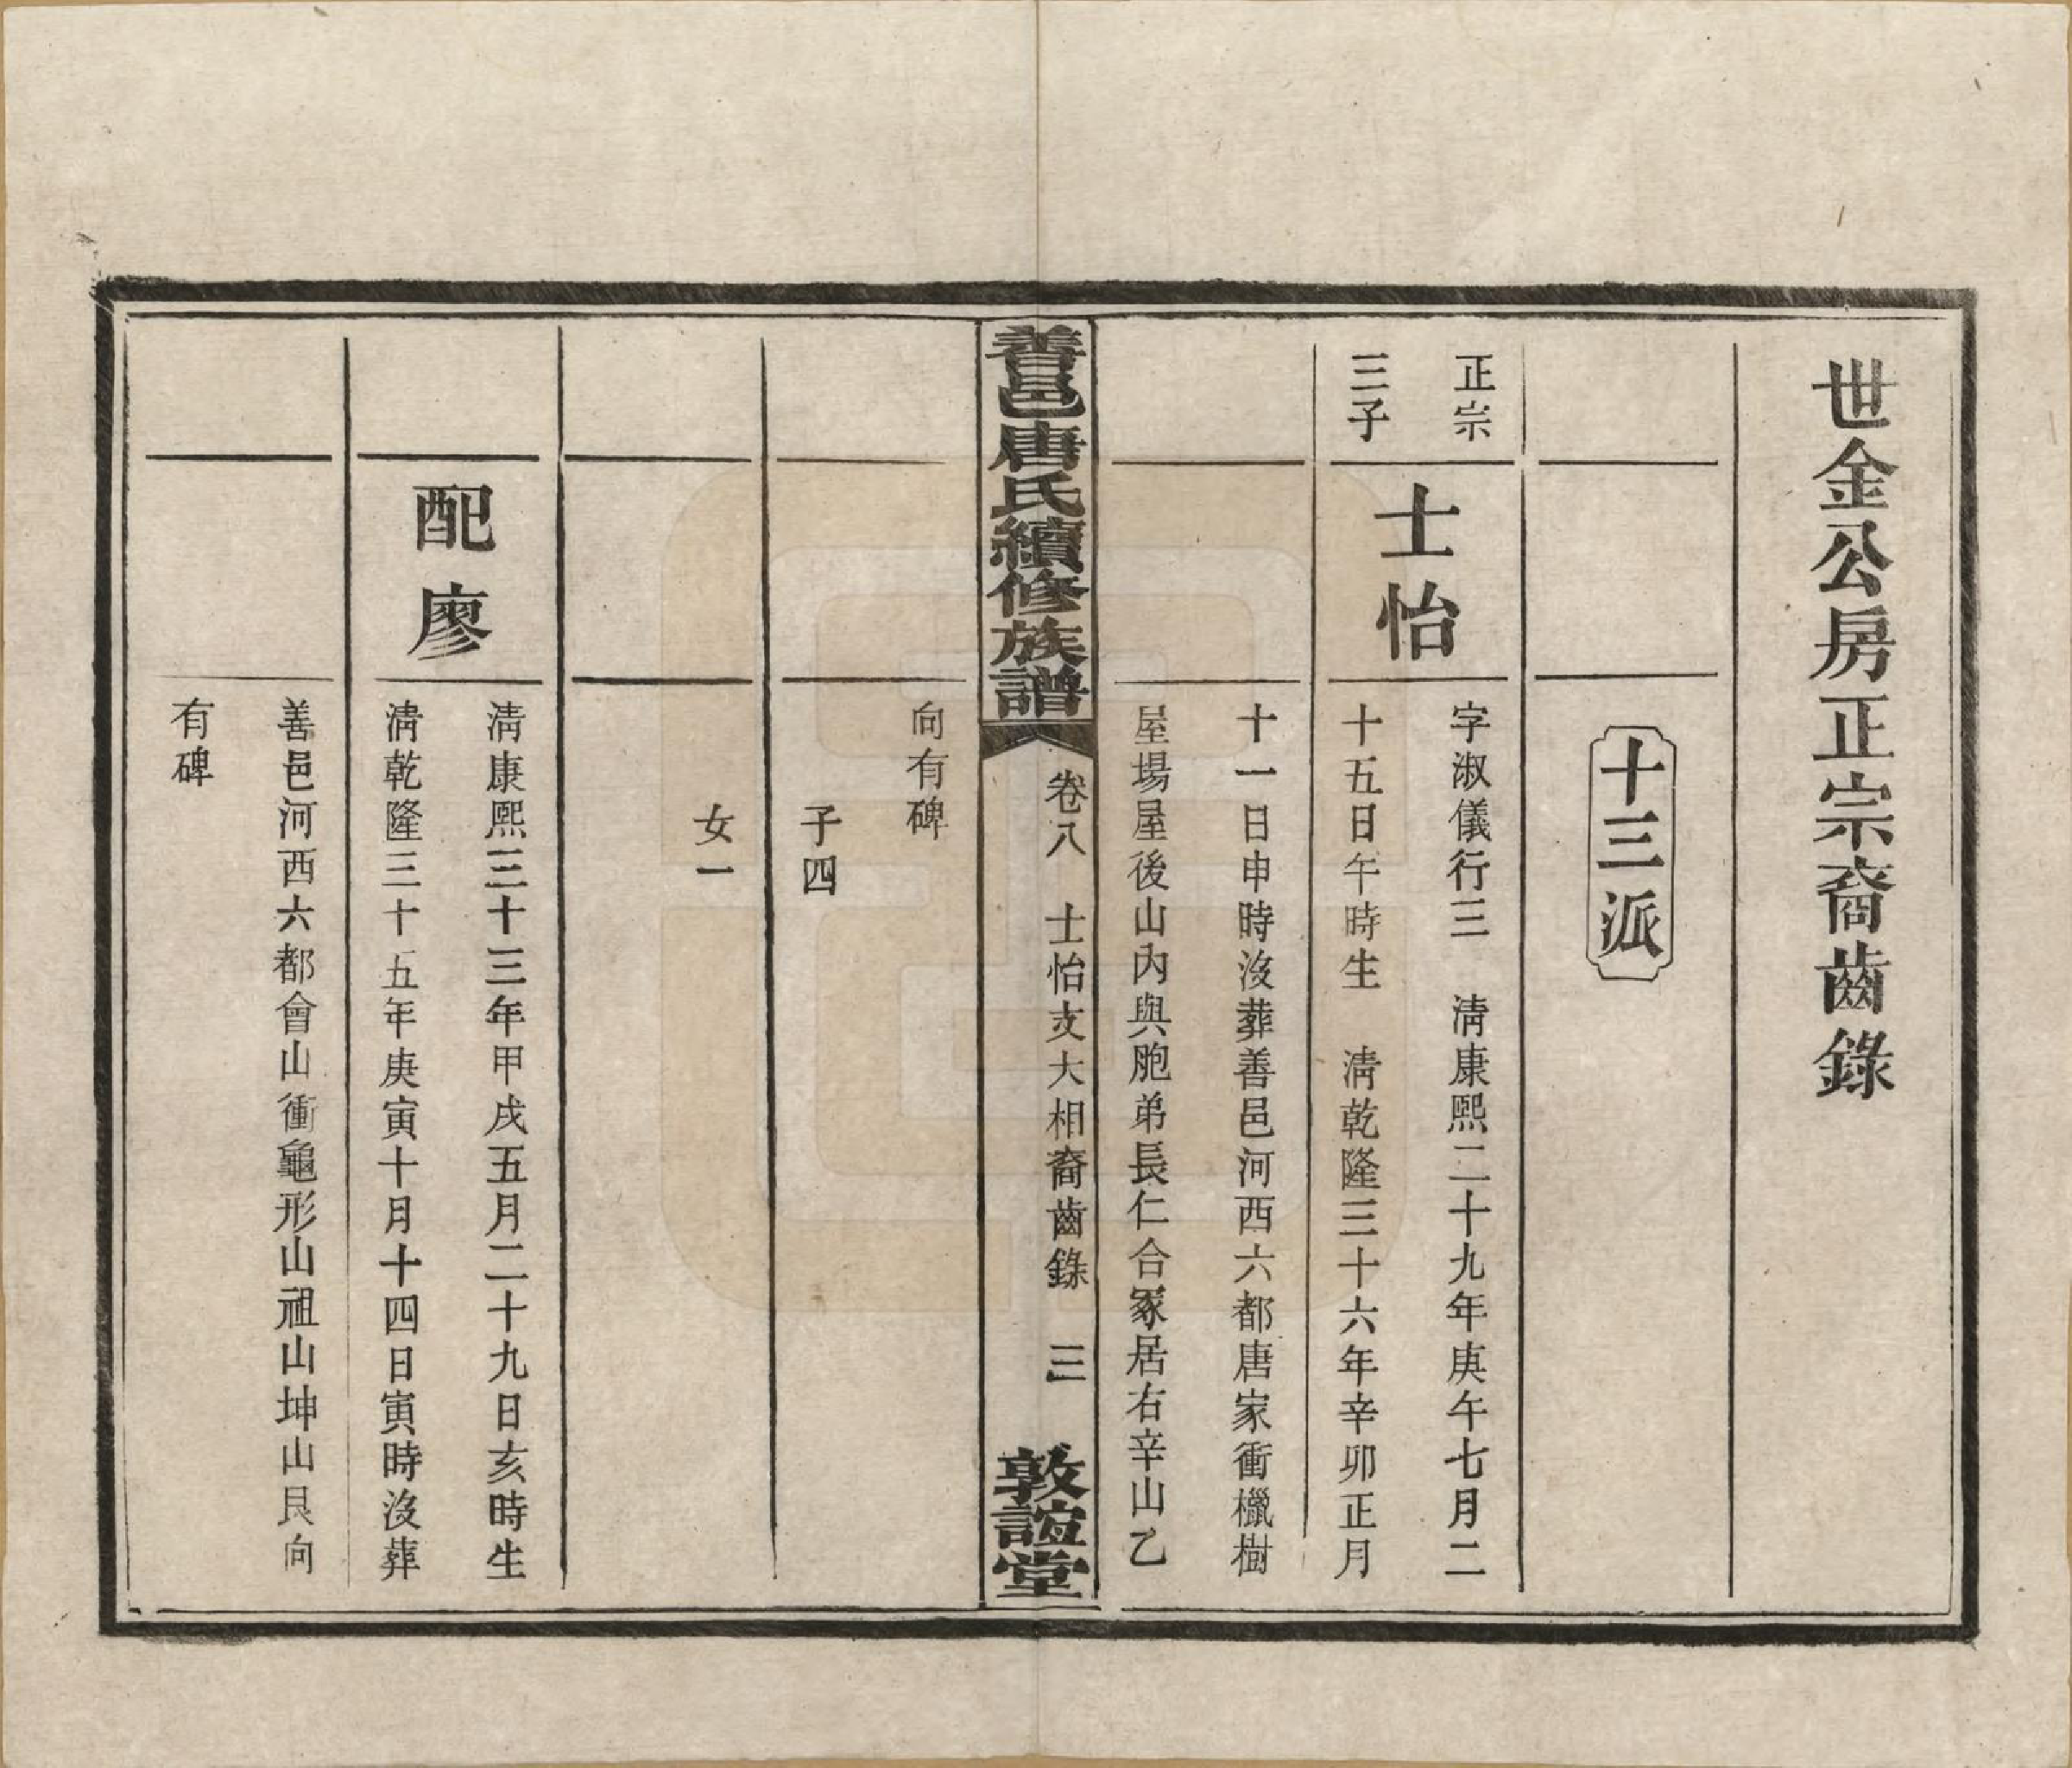 世金公房正宗裔齒錄
十三派
正宗
三子
士怡
字淑儀行三　清康熙二十九年庚午七月二
十五日午時生　清乾隆三十六年辛卯正月
十一日申時沒葬善邑河西六都唐家衝欖樹
屋場屋後山內與胞弟長仁合冢居右辛山乙
善邑唐氏續修族譜
卷八　士怡支大相裔齒錄　三
敦誼堂
向有碑
子四
女一
配廖
清康熙三十三年甲戌五月二十九日亥時生
清乾隆三十五年庚寅十月十四日寅時沒葬
善邑河西六都會山衝龜形山祖山坤山艮向
有碑